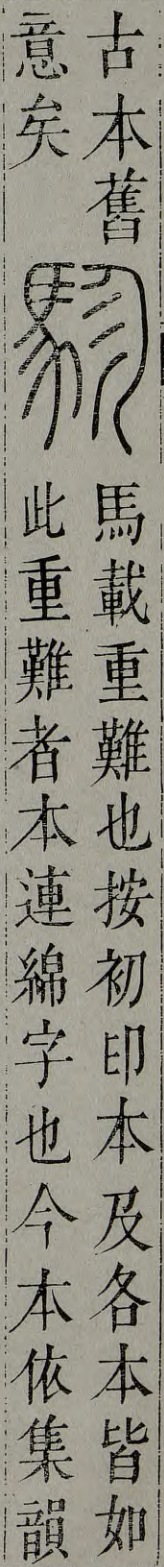 古本舊
意矣
駗
馬載重難也按初印本及各本皆如
此重難者本連綿字也今本依集韻